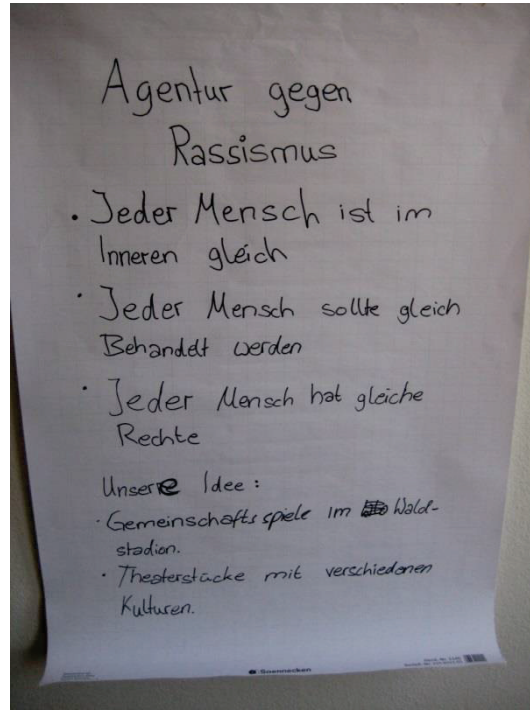 Agentur gegen
Rassismus
• Jeder Mensch ist im
Inneren gleich
• Jeder Mensch sollte gleich
Behandelt werden
• Jeder Mensch hat gleiche
Rechte
Unsere Idee:
• Gemeinschaftsspiele im Wald-
stadion.
• Theaterstücke mit verschiedenen
Kulturen.
Soennecken